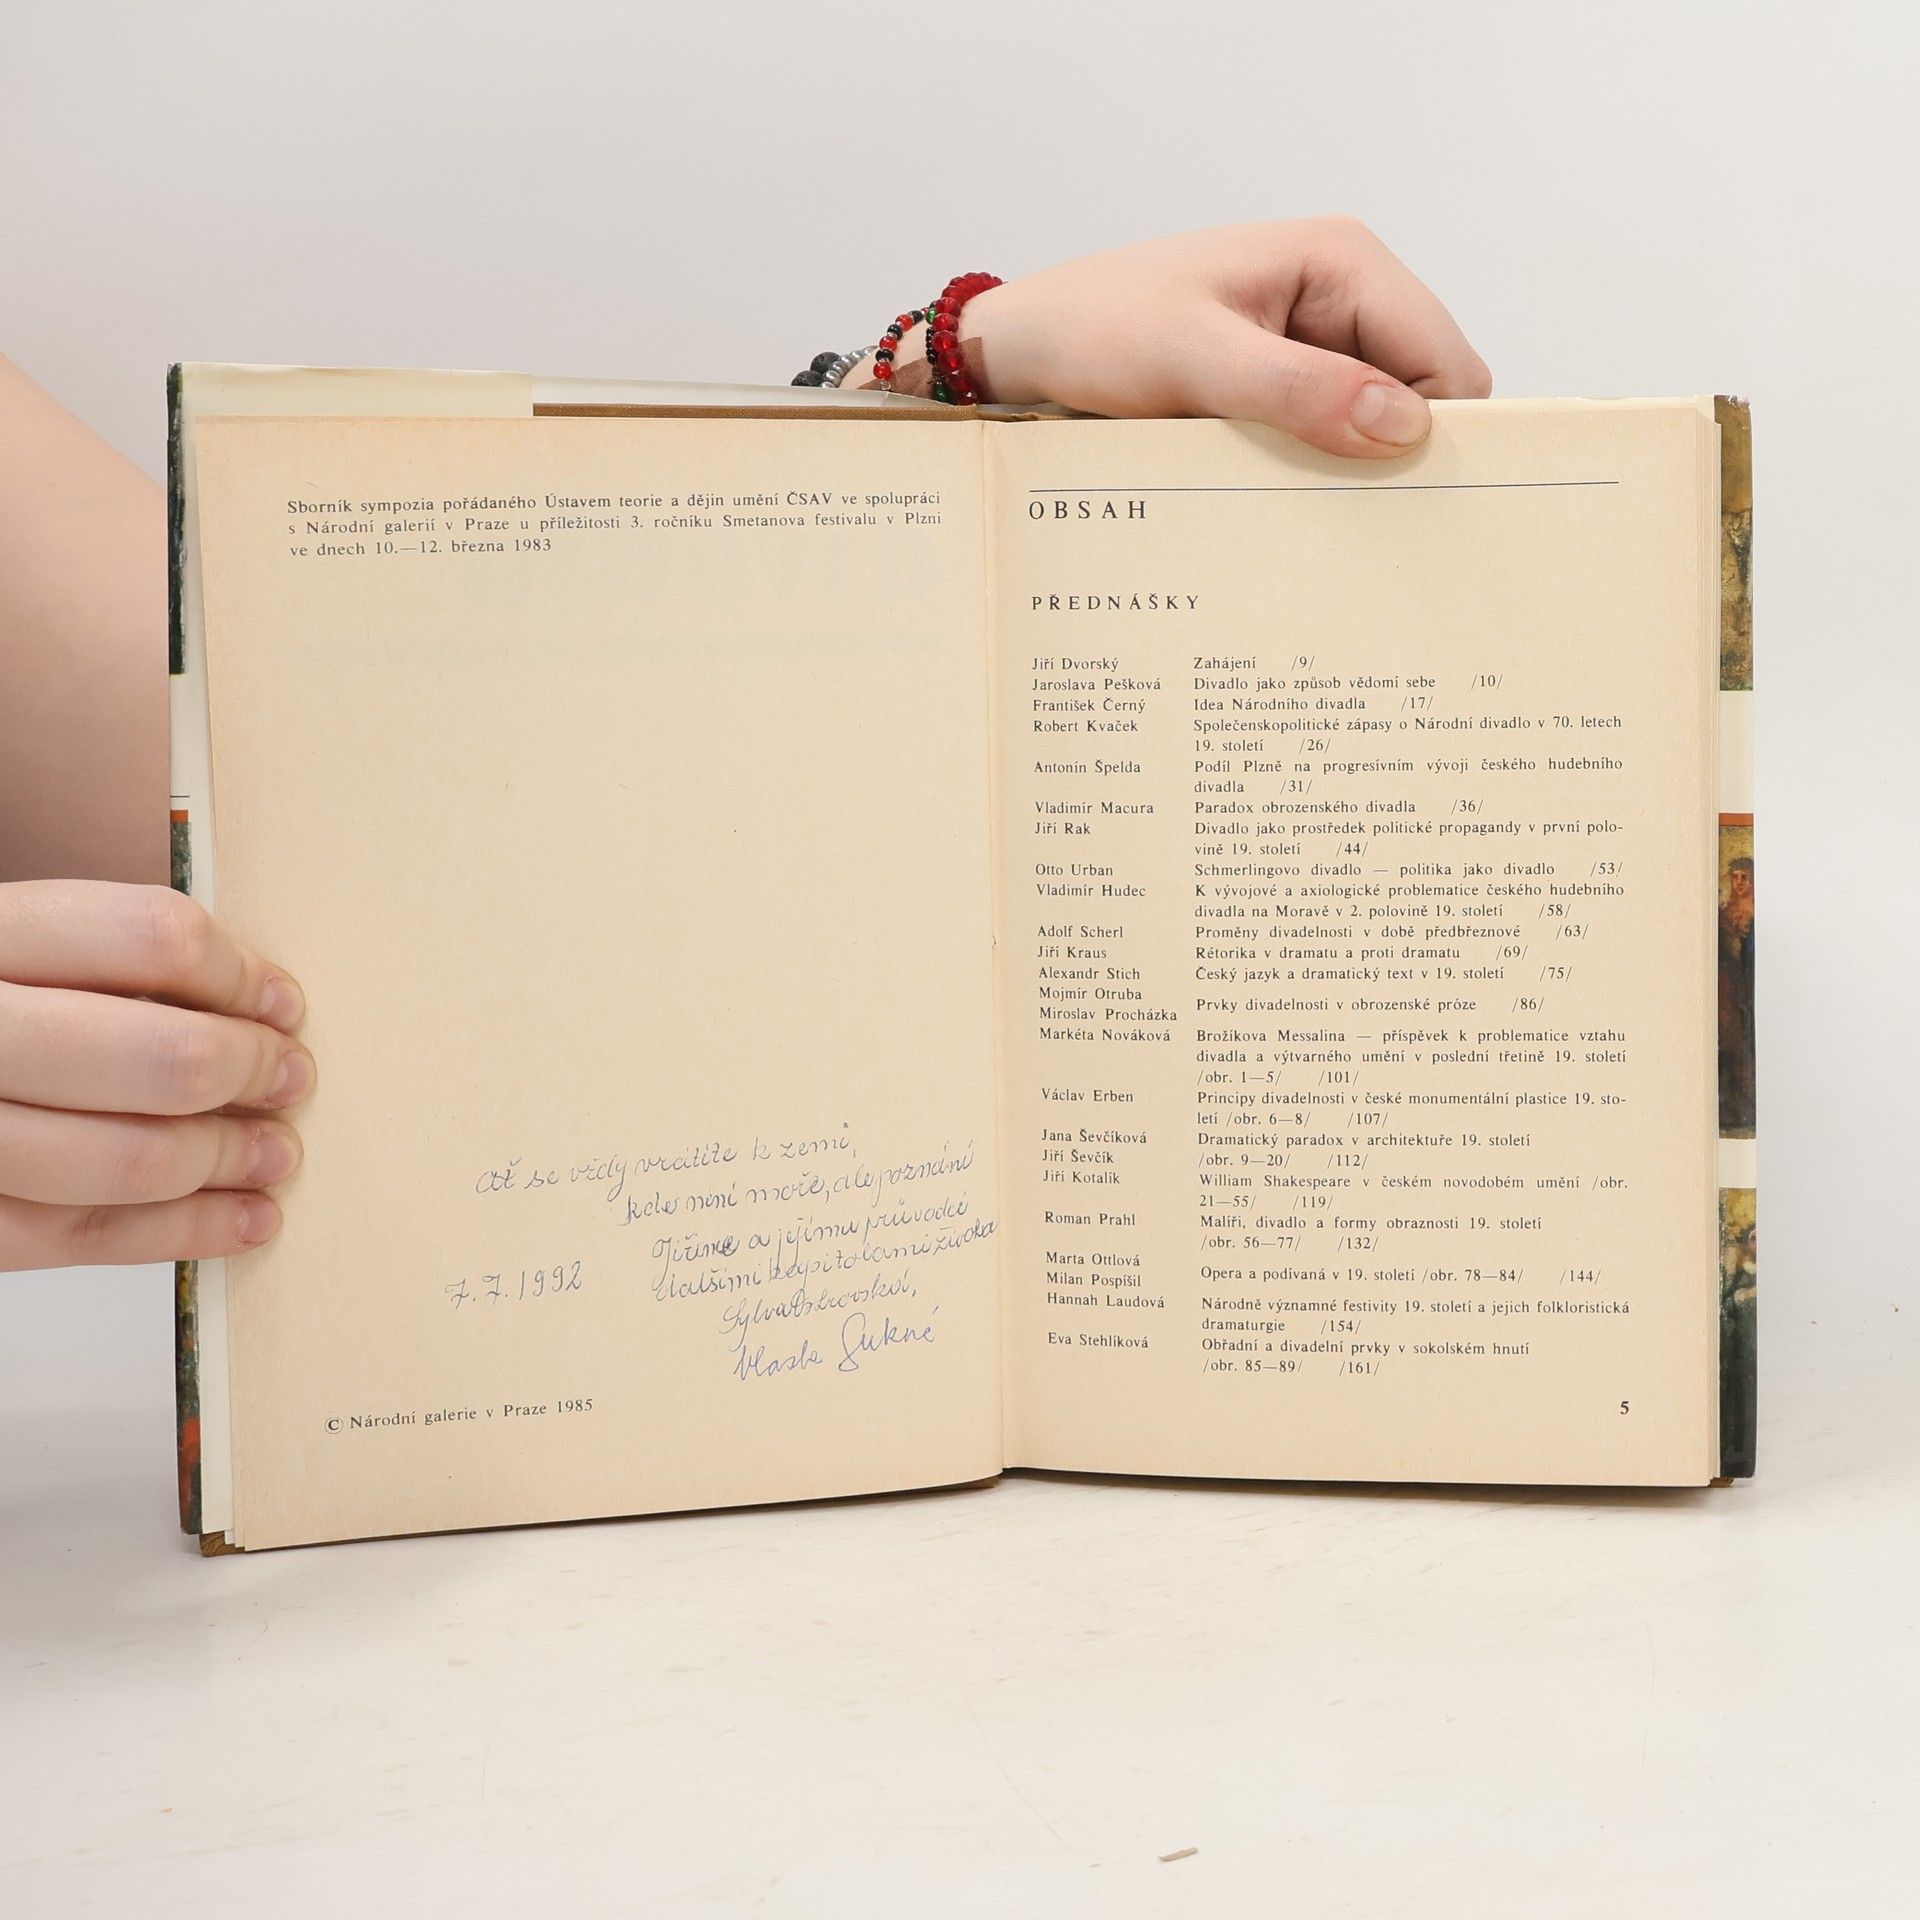 Sborník sympozia pořádaného Ústavem teorie a dějin umění ČSAV ve spolupráci
s Národní galerií v Praze u příležitosti 3. ročníku Smetanova festivalu v Plzni
ve dnech 10.—12. března 1983
Ať se vždy vrátíte k zemi,
kde není moře, ale poznání
Jiřině a jejímu průvodci
dalšími kapitolami života
7. 7. 1992
Sylva
Vlasta
© Národní galerie v Praze 1985
OBSAH
PŘEDNÁŠKY
Jiří Dvorský Zahájení /9/
Jaroslava Pešková Divadlo jako způsob vědomí sebe /10/
František Černý Idea Národního divadla /17/
Robert Kvaček Společenskopolitické zápasy o Národní divadlo v 70. letech
19. století /26/
Antonín Špelda Podíl Plzně na progresívním vývoji českého hudebního
divadla /31/
Vladimír Macura Paradox obrozenského divadla /36/
Jiří Rak Divadlo jako prostředek politické propagandy v první polo-
vině 19. století /44/
Otto Urban Schmerlingovo divadlo — politika jako divadlo /53/
Vladimír Hudec K vývojové a axiologické problematice českého hudebního
divadla na Moravě v 2. polovině 19. století /58/
Adolf Scherl Proměny divadelnosti v době předbřeznové /63/
Jiří Kraus Rétorika v dramatu a proti dramatu /69/
Alexandr Stich Český jazyk a dramatický text v 19. století /75/
Mojmír Otruba
Miroslav Procházka Prvky divadelnosti v obrozenské próze /86/
Markéta Nováková Brožíkova Messalina — příspěvek k problematice vztahu
divadla a výtvarného umění v poslední třetině 19. století
/obr. 1—5/ /101/
Václav Erben Principy divadelnosti v české monumentální plastice 19. sto-
letí /obr. 6—8/ /107/
Jana Ševčíková Dramatický paradox v architektuře 19. století
Jiří Ševčík /obr. 9—20/ /112/
Jiří Kotalík William Shakespeare v českém novodobém umění /obr.
21—55/ /119/
Roman Prahl Malíři, divadlo a formy obraznosti 19. století
/obr. 56—77/ /132/
Marta Ottlová
Milan Pospíšil Opera a podívaná v 19. století /obr. 78—84/ /144/
Hannah Laudová Národně významné festivity 19. století a jejich folkloristická
dramaturgie /154/
Eva Stehlíková Obřadní a divadelní prvky v sokolském hnutí
/obr. 85—89/ /161/
5